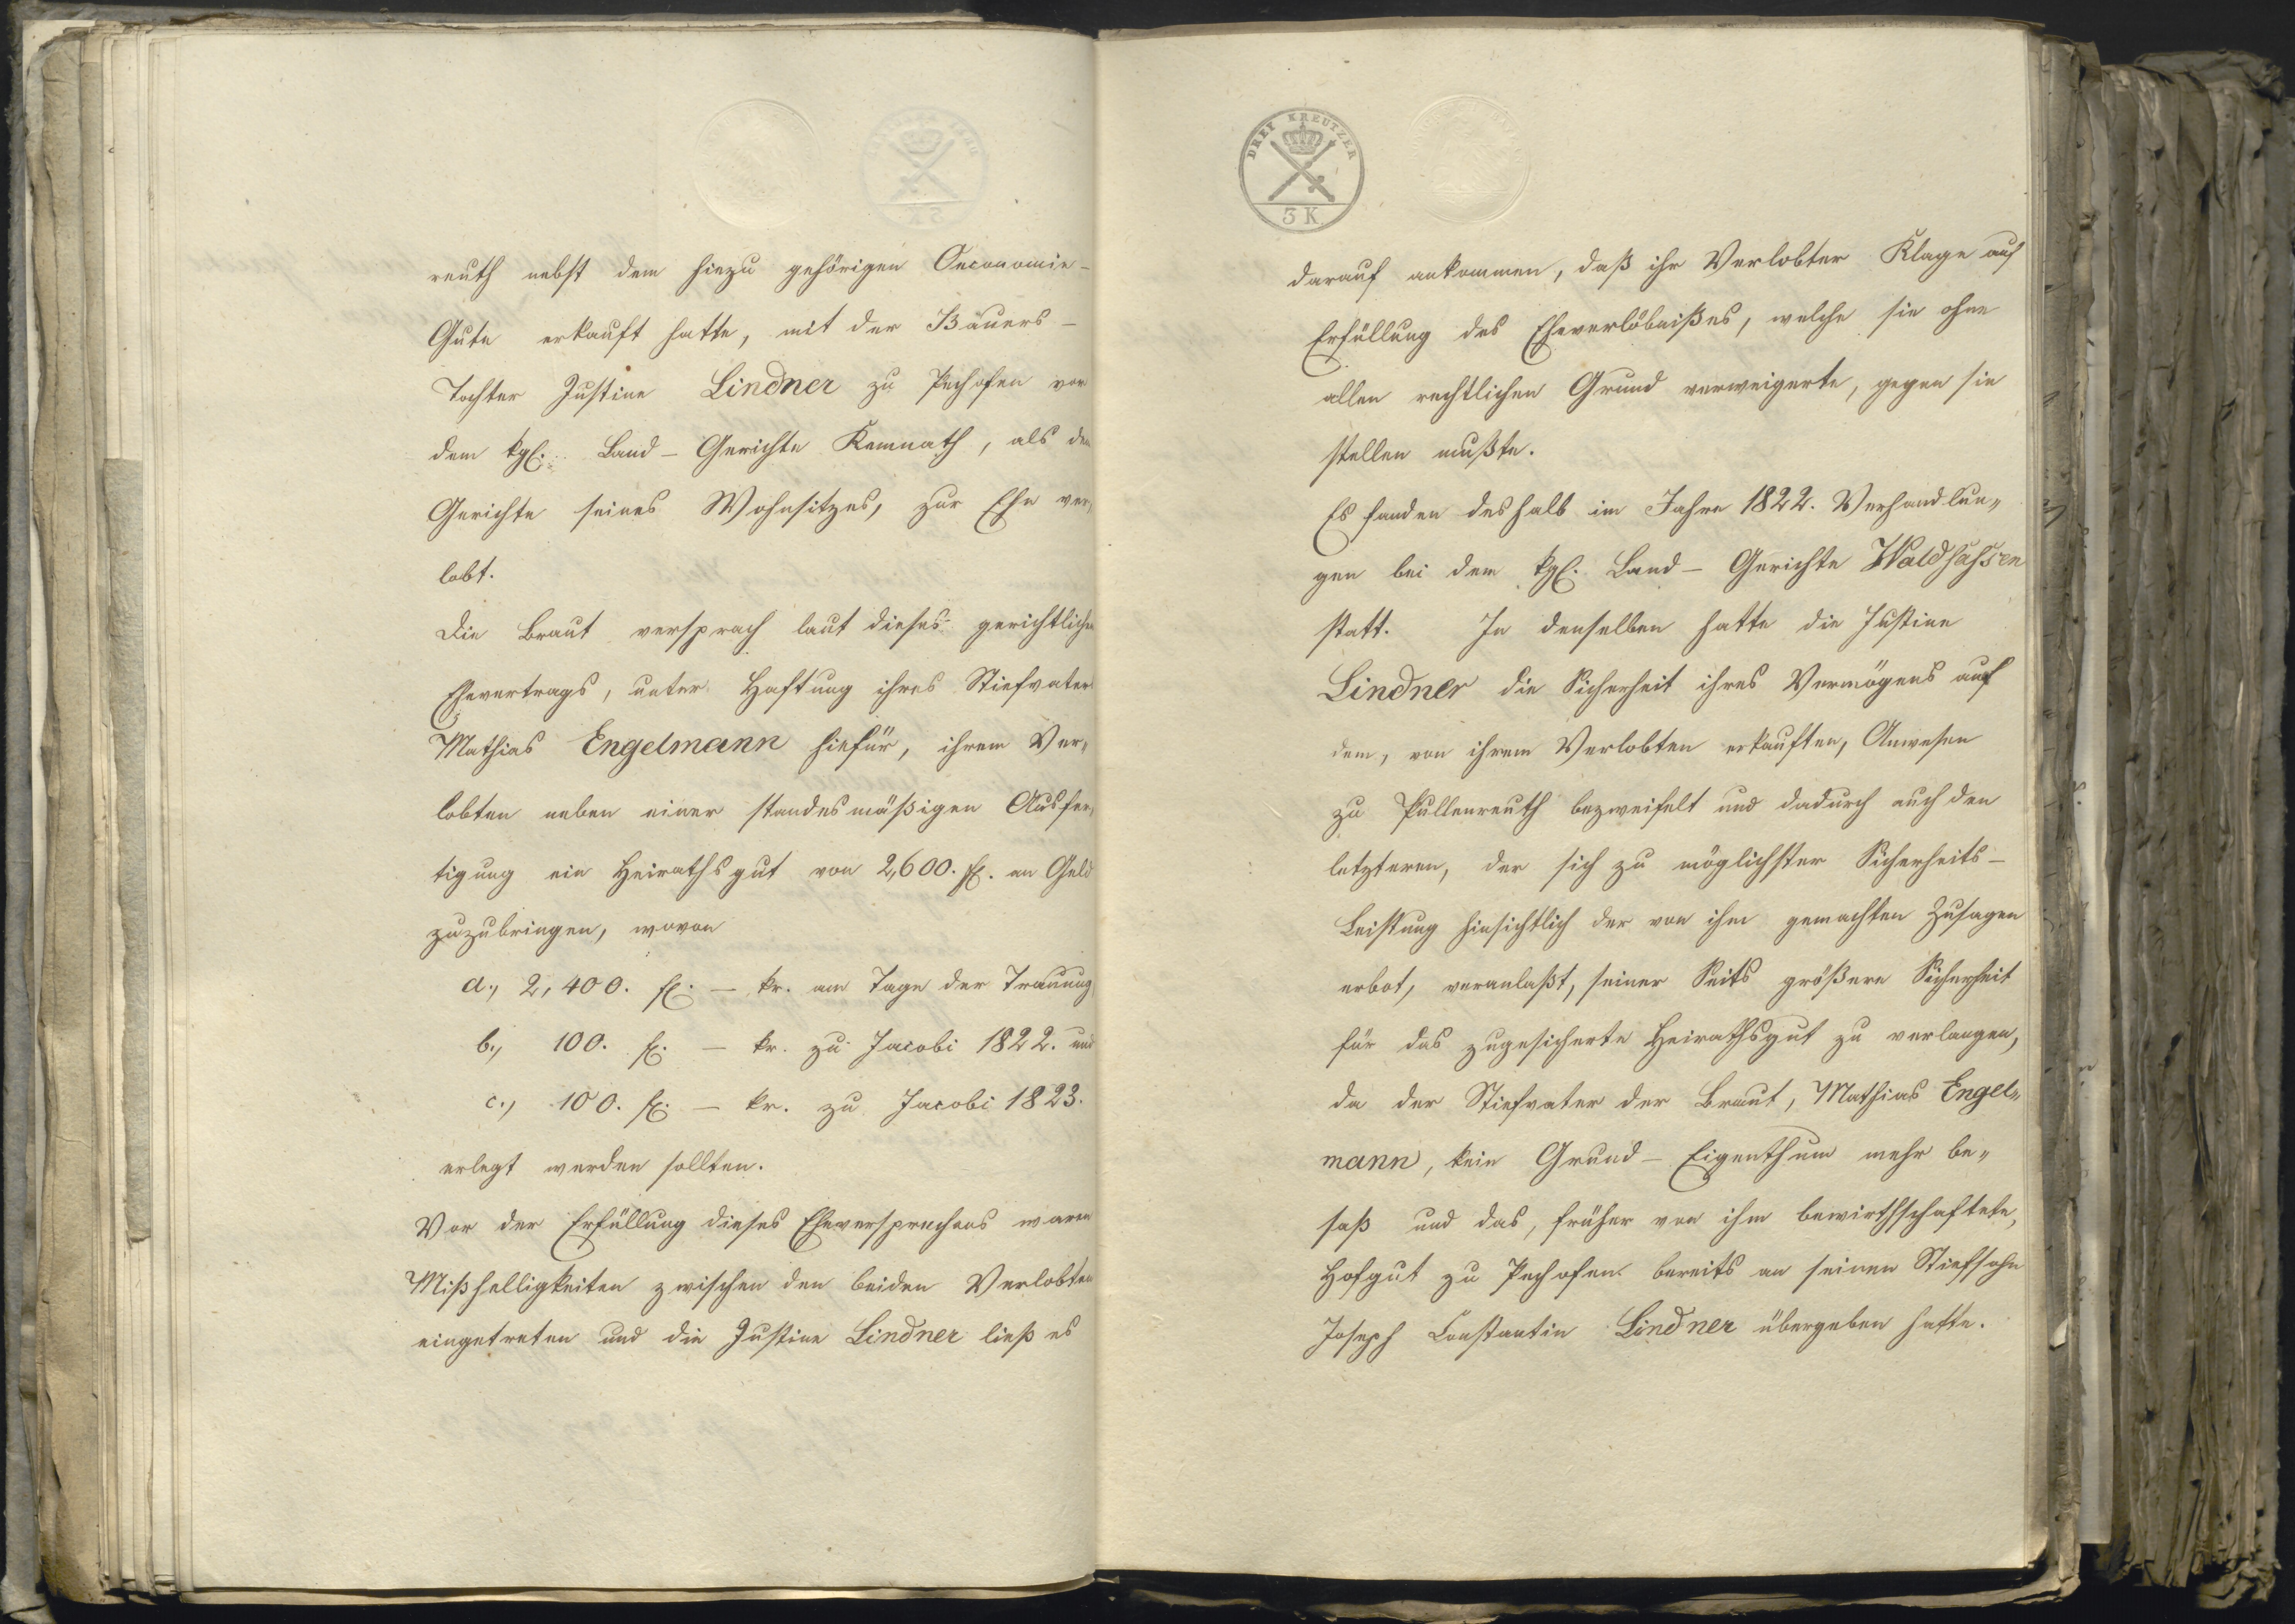 reuth nebst dem hiezu gehörigen Oeconomie-
Gute erkauft hatte, mit der Bauers-
Tochter Justine Lindner zu Pechofen vor
dem kgl. Land-Gerichte Kemnath, als dem
Gerichte seines Wohnsitzes, zur Ehe ver„
lobt.
Die Braut versprach laut dieses gerichtlichen
Ehevertrags, unter Haftung ihres Stiefvaters
Mathias Engelmann hiefür, ihrem Ver„
lobten neben einer standesmäßigen Ausfer„
tigung ein Heirathsgut von 2,600. fl. an Geld
zuzubringen, wovon
a., 2,400. fl. — kr. am Tage der Trauung,
b., 100. fl. — kr. zu Jacobi 1822. und
c., 100. fl. — kr. zu Jacobi 1823.
erlegt werden sollten.
Vor der Erfüllung dieses Eheversprechens waren
Mißhelligkeiten zwischen den beiden Verlobten
eingetreten und die Justine Lindner ließ es
DREY KREUTZER
3 K
darauf ankommen, daß ihr Verlobter Klage auf
Erfüllung des Eheverlöbnißes, welche sie ohne
allen rechtlichen Grund verweigerte, gegen sie
stellen mußte.
Es fanden deshalb im Jahre 1822. Verhandlun„
gen bei dem kgl. Land-Gerichte Waldsaßen
statt. In denselben hatte die Justine
Lindner die Sicherheit ihres Vermögens auf
dem, von ihrem Verlobten erkauften, Anwesen
zu Pullenreuth bezweifelt und dadurch auch den
letzteren, der sich zu möglichster Sicherheits-
Leistung hinsichtlich der von ihm gemachten Zusagen
erbot, veranlaßt, seiner Seits größere Sicherheit
für das zugesicherte Heirathsgut zu verlangen,
da der Stiefvater der Braut, Mathias Engel„
mann, kein Grund-Eigenthum mehr be„
saß und das, früher von ihm bewirthschaftete,
Hofgut zu Pechofen bereits an seinen Stiefsohn
Joseph Constantin Lindner übergeben hatte.